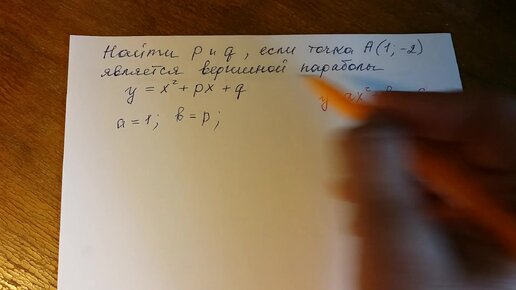 Найти p и q, если точка A(1;-2)
является вершиной параболы
y = x² + px + q
y ax²
a=1; в=p;